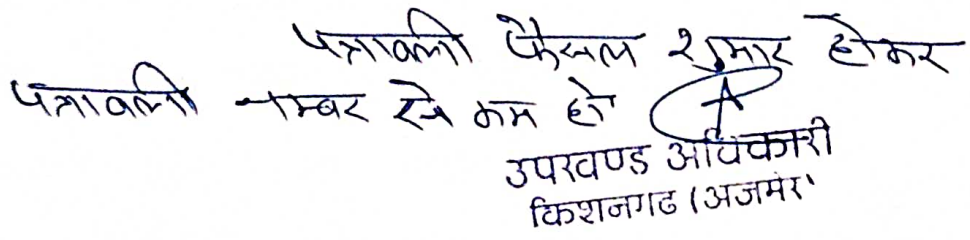 पत्रावली फैसल शुमार होकर
पत्रावली नम्बर से कम हो
उपखण्ड अधिकारी
किशनगढ (अजमेर)